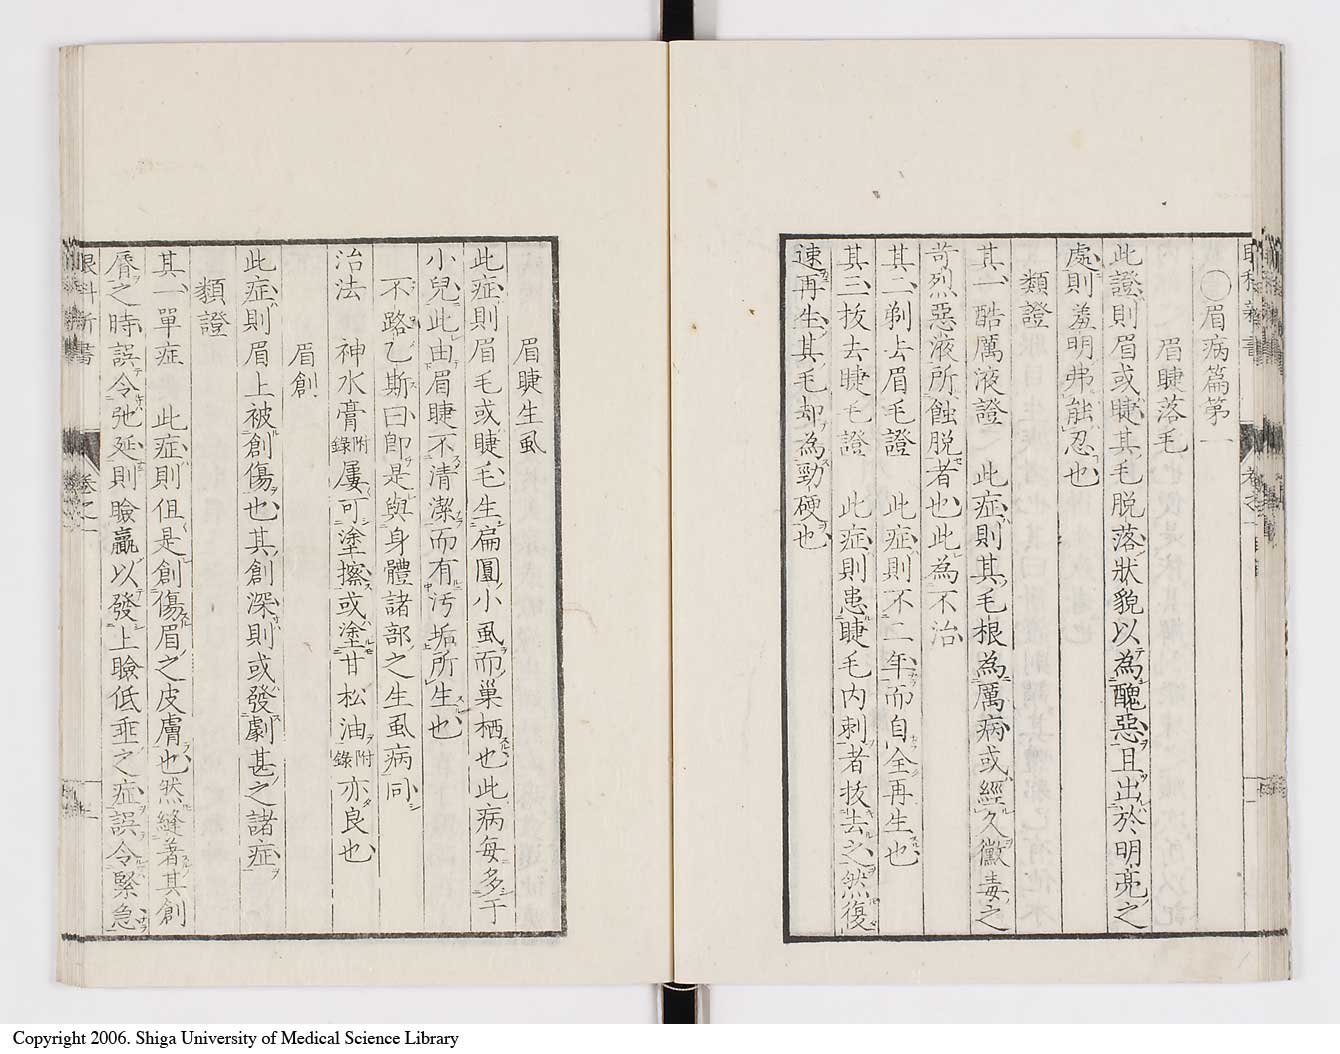 ㊀眉病篇第一
眉睫落毛
此證則眉或睫其毛脱落狀貌以為醜惡且出於明亮之
處則羞明弗能忍也
類證
其一酷厲液證 此症則其毛根為厲病或經久黴毒之
苛烈惡液所蝕脱者也此為不治
其二剃去眉毛證 此症則不二年而自全再生也
其三抜去睫毛證 此症則患睫毛内刺者抜去之然復
速再生其毛却為勁硬也
眉睫生虱
此症則眉毛或睫毛生扁圓小虱而巢栖也此病毎多于
小兒此由眉睫不清潔而有汚垢所生也
不路乙斯曰卽是與身體諸部之生虱病同
治法 神水膏附錄屢可塗擦或塗甘松油附錄亦良也
眉創
此症則眉上被創傷也其創深則或發劇甚之諸症
類證
其一單症 此症則但是創傷眉之皮膚也然縫著其創
脣之時誤令弛延則瞼贏以發上瞼低垂之症誤令緊急
眼科新書
卷之一
Copyright 2006. Shiga University of Medical Science Library